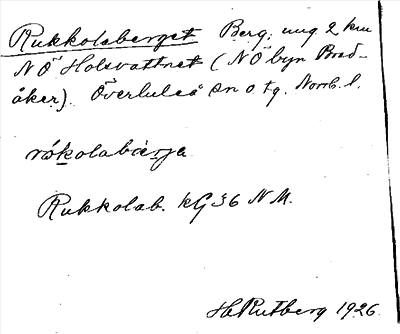 Rukkolaberget Berg, ung. 2 km
NÖ Holsvattnet (NÖ byn Bred-
åker). Överluleå sn o tg. Norrb. l.
råkolabärja
Rukkolab. kG 36 NM.
H Rutberg 1926.